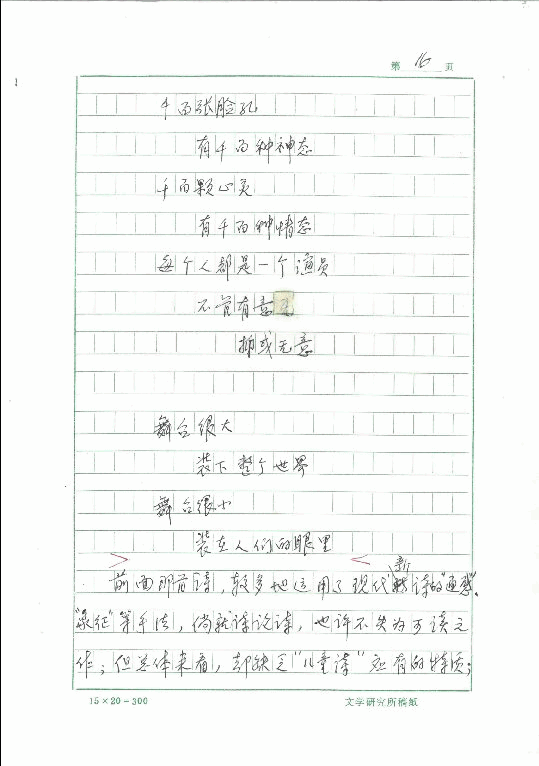 第 16 页
千百张脸孔
有千百种神态
千百颗心灵
有千百种情态
每个人都是一个演员
不管有意
抑或无意
舞台很大
装下整个世界
舞台很小
装在人们的眼里
前面那首诗，较多地运用了现代新诗的"通感"、
"象征"等手法，倘就诗论诗，也许不失为可读之
作；但总体来看，却缺乏"儿童诗"应有的特质；
15×20=300
文学研究所稿纸